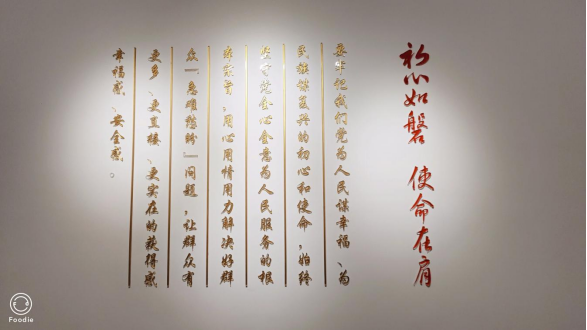 初心如磐 使命在肩
要牢记我们党为人民谋幸福、为
民族谋复兴的初心和使命，始终
坚守党全心全意为人民服务的根
本宗旨，用心用情用力解决好群
众“急难愁盼”问题，让群众有
更多、更直接、更实在的获得感
幸福感、安全感。
Foodie